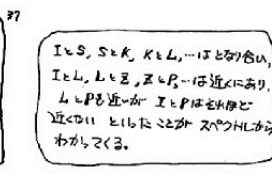 37
IとS, SとK, KとL, …はとなり合い,
IとL, LとZ, ZとP, …は近くにあり,
LとPも近いが IとPはそれほど
近くない といったことが スペクトルから
わかってくる.